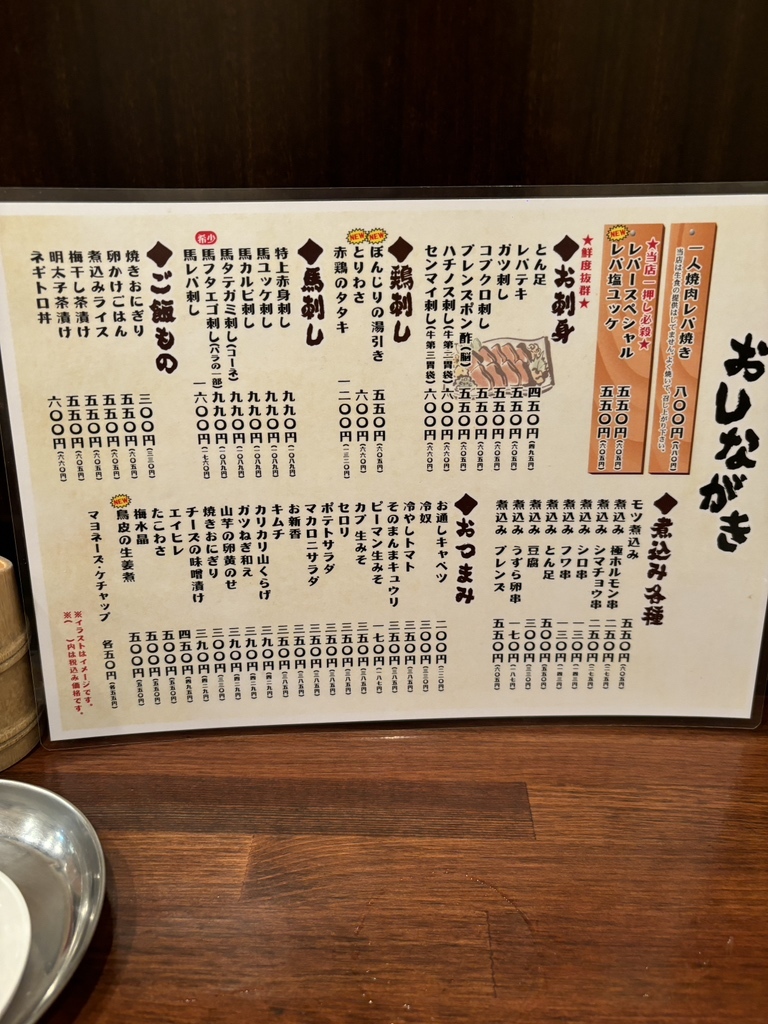 おしながき
一人焼肉レバ焼き 八〇〇円(八八〇円)
当店は生食の提供はしてません。よく焼いて、召し上がり下さい。
★当店一押し必殺★
レバースペシャル 五五〇円(六〇五円)
NEW レバ塩ユッケ 五五〇円(六〇五円)
★鮮度抜群★
◆お刺身
とん足 四五〇円(四九五円)
レバテキ 五五〇円(六〇五円)
ガツ刺し 五五〇円(六〇五円)
コブクロ刺し 五五〇円(六〇五円)
ブレンズポン酢(脳) 五五〇円(六〇五円)
ハチノス刺し(牛第二胃袋) 六〇〇円(六六〇円)
センマイ刺し(牛第三胃袋) 六〇〇円(六六〇円)
◆鶏刺し
NEW ぼんじりの湯引き 五五〇円(六〇五円)
NEW とりわさ 六〇〇円(六六〇円)
赤鶏のタタキ 一二〇〇円(一三二〇円)
◆馬刺し
特上赤身刺し 九九〇円(一〇八九円)
馬ユッケ刺し 九九〇円(一〇八九円)
馬カルビ刺し 九九〇円(一〇八九円)
馬タテガミ刺し(コーネ) 九九〇円(一〇八九円)
希少 馬フタエゴ刺し(バラの一部) 九九〇円(一〇八九円)
馬レバ刺し 一六〇〇円(一七六〇円)
◆ご飯もの
焼きおにぎり 三〇〇円(三三〇円)
卵かけごはん 五五〇円(六〇五円)
煮込みライス 五五〇円(六〇五円)
梅干し茶漬け 五五〇円(六〇五円)
明太子茶漬け 五五〇円(六〇五円)
ネギトロ丼 六〇〇円(六六〇円)
◆煮込み各種
モツ煮込み 五五〇円(六〇五円)
煮込み 極ホルモン串 二五〇円(二七五円)
煮込み シマチョウ串 二五〇円(二七五円)
煮込み シロ串 一三〇円(一四三円)
煮込み フワ串 一三〇円(一四三円)
煮込み とん足 五五〇円(六〇五円)
煮込み 豆腐 三〇〇円(三三〇円)
煮込み うずら卵串 一七〇円(一八七円)
煮込み ブレンズ 五五〇円(六〇五円)
◆おつまみ
お通しキャベツ 二〇〇円(二二〇円)
冷奴 三〇〇円(三三〇円)
冷やしトマト 三五〇円(三八五円)
そのまんまキュウリ 三五〇円(三八五円)
ピーマン生みそ 一七〇円(一八七円)
カブ生みそ 三五〇円(三八五円)
セロリ 三五〇円(三八五円)
ポテトサラダ 三五〇円(三八五円)
マカロニサラダ 三五〇円(三八五円)
お新香 三五〇円(三八五円)
キムチ 三五〇円(三八五円)
カリカリ山くらげ 三九〇円(四二九円)
ガツねぎ和え 三九〇円(四二九円)
山芋の卵黄のせ 三九〇円(四二九円)
焼きおにぎり 三〇〇円(三三〇円)
チーズの味噌漬け 三九〇円(四二九円)
エイヒレ 四五〇円(四九五円)
たこわさ 五〇〇円(五五〇円)
梅水晶 五〇〇円(五五〇円)
NEW 鳥皮の生姜煮 五〇〇円(五五〇円)
マヨネーズ・ケチャップ 各五〇円(各五五円)
※イラストはイメージです。
※( )内は税込み価格です。